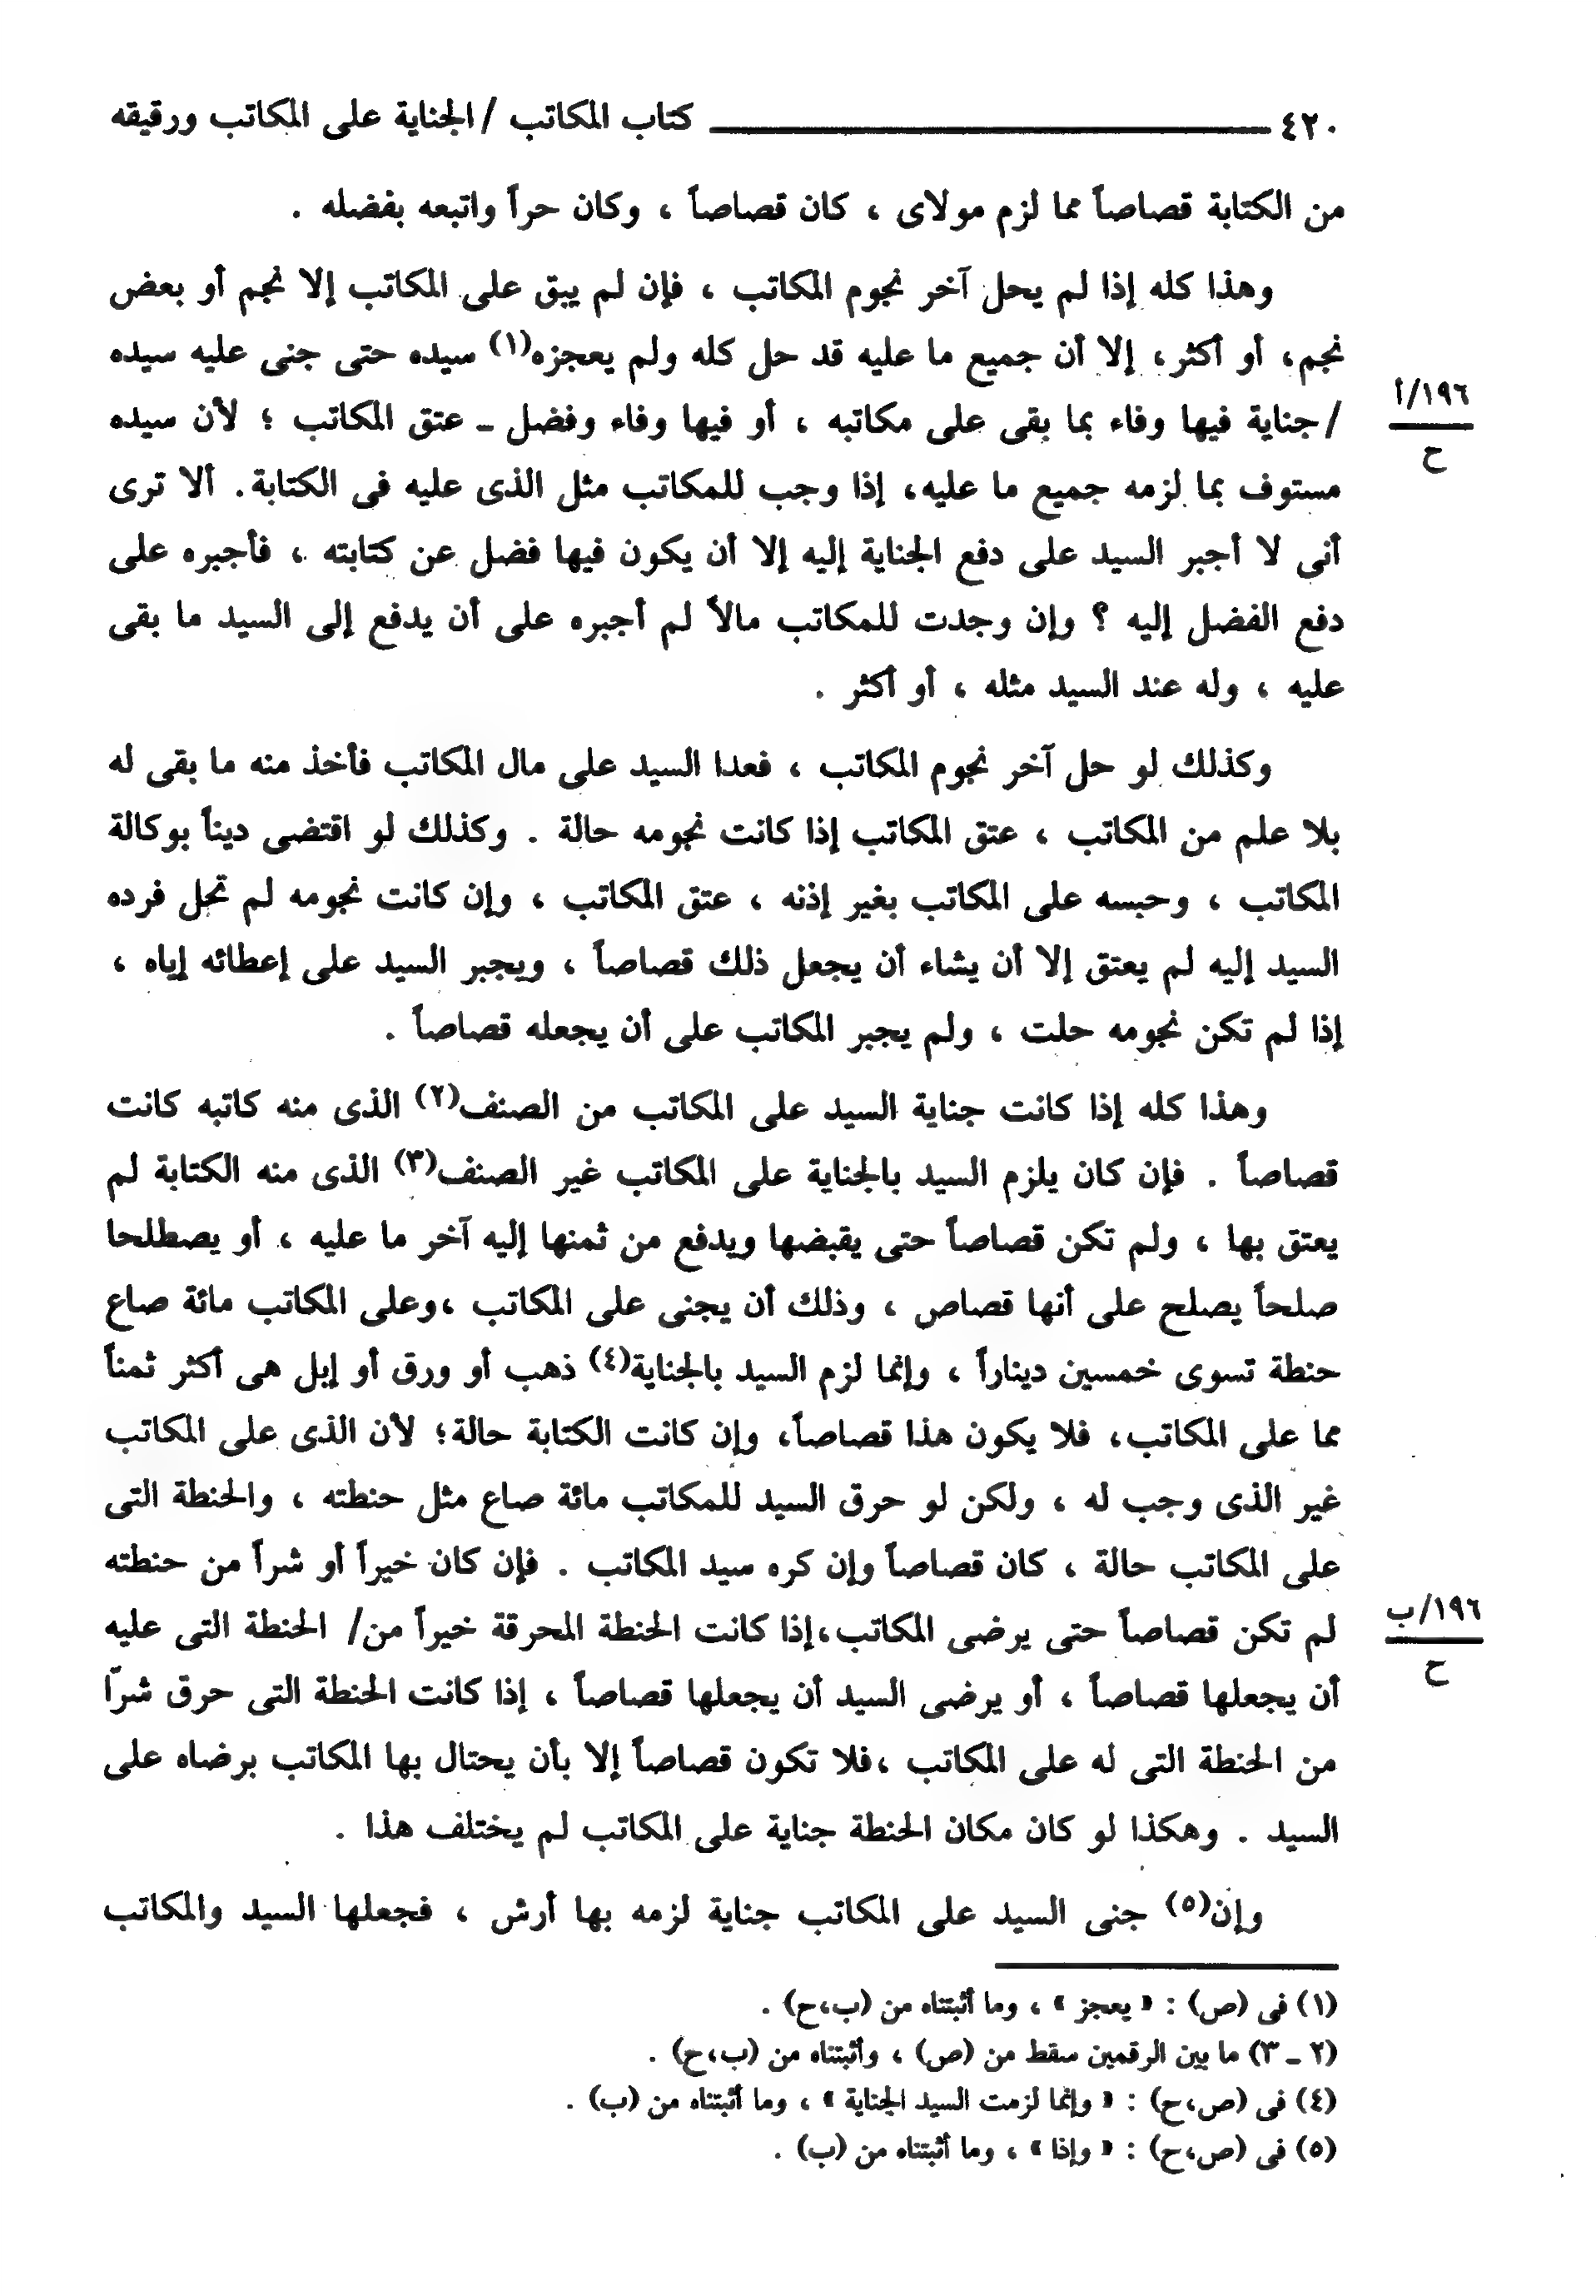 ٤٢٠ كتاب المكاتب / الجناية على المكاتب ورقيقه
من الكتابة قصاصاً مما لزم مولاى ، كان قصاصاً ، وكان حراً واتبعه بفضله .
وهذا كله إذا لم يحل آخر نجوم المكاتب ، فإن لم يبق على المكاتب إلا نجم أو بعض
نجم، أو أكثر، إلا أن جميع ما عليه قد حل كله ولم يعجزه(١) سيده حتى جنى عليه سيده
١٩٦/أ
/ جناية فيها وفاء بما بقى على مكاتبه ، أو فيها وفاء وفضل ـ عتق المكاتب ؛ لأن سيده
ح
مستوف بما لزمه جميع ما عليه، إذا وجب للمكاتب مثل الذى عليه فى الكتابة. ألا ترى
أنى لا أجبر السيد على دفع الجناية إليه إلا أن يكون فيها فضل عن كتابته ، فأجبره على
دفع الفضل إليه ؟ وإن وجدت للمكاتب مالاً لم أجبره على أن يدفع إلى السيد ما بقى
عليه ، وله عند السيد مثله ، أو أكثر .
وكذلك لو حل آخر نجوم المكاتب ، فعدا السيد على مال المكاتب فأخذ منه ما بقى له
بلا علم من المكاتب ، عتق المكاتب إذا كانت نجومه حالة . وكذلك لو اقتضى ديناً بوكالة
المكاتب ، وحبسه على المكاتب بغير إذنه ، عتق المكاتب ، وإن كانت نجومه لم تحل فرده
السيد إليه لم يعتق إلا أن يشاء أن يجعل ذلك قصاصاً ، ويجبر السيد على إعطائه إياه ،
إذا لم تكن نجومه حلت ، ولم يجبر المكاتب على أن يجعله قصاصاً .
وهذا كله إذا كانت جناية السيد على المكاتب من الصنف(٢) الذى منه كاتبه كانت
قصاصاً . فإن كان يلزم السيد بالجناية على المكاتب غير الصنف(٣) الذى منه الكتابة لم
يعتق بها ، ولم تكن قصاصاً حتى يقبضها ويدفع من ثمنها إليه آخر ما عليه ، أو يصطلحا
صلحاً يصلح على أنها قصاص ، وذلك أن يجنى على المكاتب ،وعلى المكاتب مائة صاع
حنطة تسوى خمسين ديناراً ، وإنما لزم السيد بالجناية(٤) ذهب أو ورق أو إبل هى أكثر ثمناً
مما على المكاتب، فلا يكون هذا قصاصاً، وإن كانت الكتابة حالة؛ لأن الذى على المكاتب
غير الذى وجب له ، ولكن لو حرق السيد للمكاتب مائة صاع مثل حنطته ، والحنطة التى
على المكاتب حالة ، كان قصاصاً وإن كره سيد المكاتب . فإن كان خيراً أو شراً من حنطته
١٩٦/ب
لم تكن قصاصاً حتى يرضى المكاتب،إذا كانت الحنطة المحرقة خيراً من/ الحنطة التى عليه
ح
أن يجعلها قصاصاً ، أو يرضى السيد أن يجعلها قصاصاً ، إذا كانت الحنطة التى حرق شرّا
من الحنطة التى له على المكاتب ،فلا تكون قصاصاً إلا بأن يحتال بها المكاتب برضاه على
السيد . وهكذا لو كان مكان الحنطة جناية على المكاتب لم يختلف هذا .
وإن(٥) جنى السيد على المكاتب جناية لزمه بها أرش ، فجعلها السيد والمكاتب
(١) فى (ص) : « يعجز » ، وما أثبتناه من (ب،ح) .
(٢ ـ ٣) ما بين الرقمين سقط من (ص) ، وأثبتناه من (ب،ح) .
(٤) فى (ص،ح) : « وإنما لزمت السيد الجناية » ، وما أثبتناه من (ب) .
(٥) فى (ص،ح) : « وإذا » ، وما أثبتناه من (ب) .